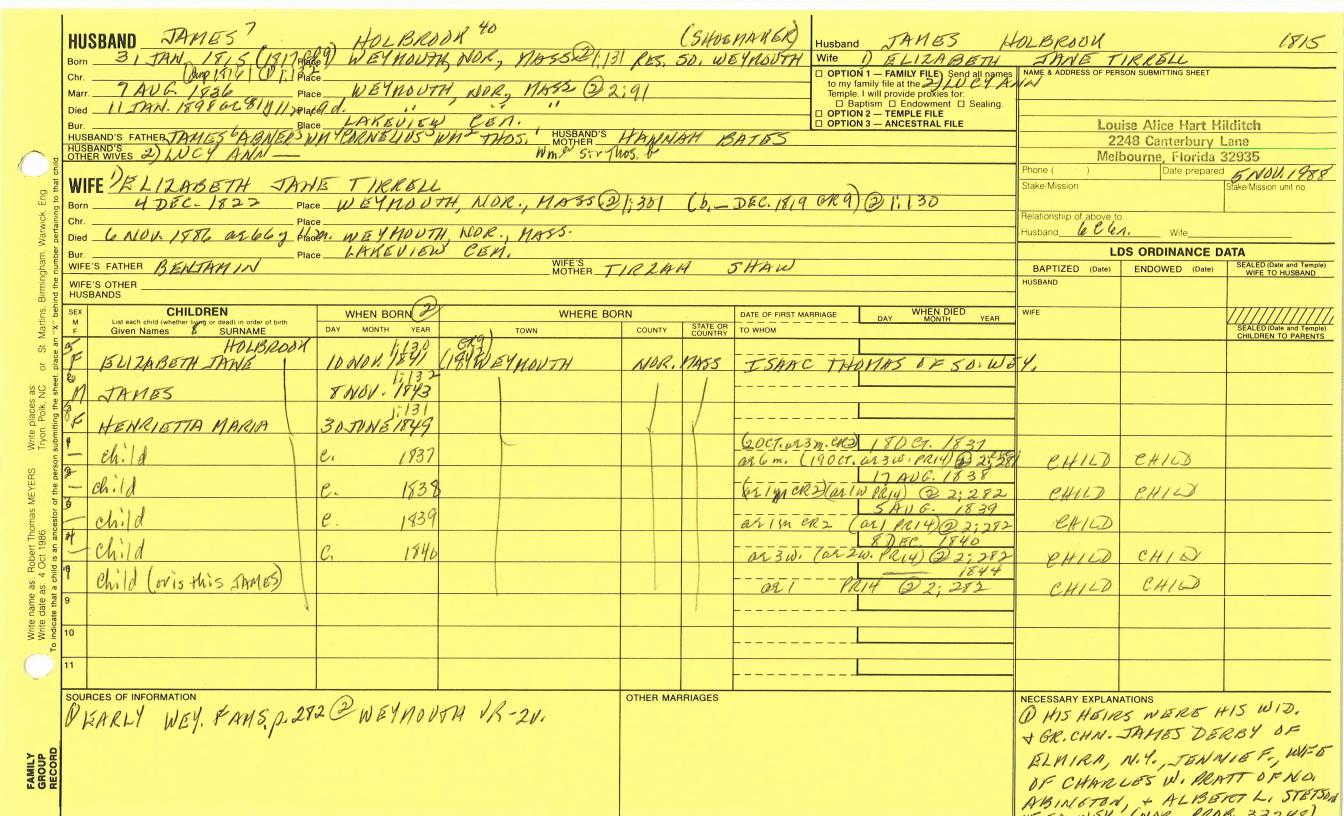 HUSBAND JAMES 7 HOLBROOK 40 (SHOEMAKER)
Born 31 JAN. 1815 (1817 CR9) Place WEYMOUTH, NOR, MASS ② 1;131 RES. SO. WEYMOUTH
Chr. Place
Marr. 7 AUG 1836 Place WEYMOUTH, NOR, MASS ② 2;91
Died 11 JAN. 1898 Place " " "
Bur. Place LAKEVIEW CEM.
HUSBAND'S FATHER JAMES 6 ABNER 5 WM 4 CORNELIUS 3 WM 2 THOS. 1 HUSBAND'S MOTHER HANNAH BATES
HUSBAND'S OTHER WIVES 2) LUCY ANN —
Husband JAMES HOLBROOK 1815
Wife 1) ELIZABETH JANE TIRRELL
2) LUCY ANN
OPTION 1 — FAMILY FILE Send all names
to my family file at the
Temple. I will provide proxies for:
Baptism Endowment Sealing.
OPTION 2 — TEMPLE FILE
OPTION 3 — ANCESTRAL FILE
NAME & ADDRESS OF PERSON SUBMITTING SHEET
Louise Alice Hart Hilditch
2248 Canterbury Lane
Melbourne, Florida 32935
Phone ( ) Date prepared 5 NOV. 1988
Stake/Mission Stake/Mission unit no.
Relationship of above to
Husband Wife
WIFE 1) ELIZABETH JANE TIRRELL
Born 4 DEC. 1822 Place WEYMOUTH, NOR., MASS ② 1;301 (b. — DEC. 1819 GR9) ② 1;130
Chr. Place
Died 6 NOV. 1886 Place WEYMOUTH, NOR., MASS.
Bur. Place LAKEVIEW CEM.
WIFE'S FATHER BENJAMIN WIFE'S MOTHER TIRZAH SHAW
WIFE'S OTHER HUSBANDS
LDS ORDINANCE DATA
BAPTIZED (Date) ENDOWED (Date) SEALED (Date and Temple) WIFE TO HUSBAND
HUSBAND
WIFE
SEALED (Date and Temple) CHILDREN TO PARENTS
SEX M F
CHILDREN
List each child (whether living or dead) in order of birth
Given Names 8 SURNAME
WHEN BORN ②
DAY MONTH YEAR
WHERE BORN
TOWN COUNTY STATE OR COUNTRY
DATE OF FIRST MARRIAGE
TO WHOM
WHEN DIED
DAY MONTH YEAR
5 F HOLBROOK ELIZABETH JANE 1;130 10 NOV. 1841 WEYMOUTH NOR. MASS ISAAC THOMAS OF SO. WEY.
6 M JAMES 1;132 8 NOV. 1843
F HENRIETTA MARIA 1;131 30 JUNE 1849
1 — child c. 1837 (2 OCT. ae 3m. CR2) 18 DEC. 1837
ae 6 m. (19 OCT. ae 3w. PR14) ② 2;281 CHILD CHILD
2 — child c. 1838 17 AUG. 1838
② 2;282 CHILD CHILD
3 — child c. 1839 5 AUG. 1839
ae 1m CR2 (ae 1 PR14) ② 2;282 CHILD
4 — child c. 1840 8 DEC. 1840
ae 3w. (ae 2w. PR14) ② 2;282 CHILD CHILD
child (or is this JAMES) — 1844
ae 1 PR14 ② 2;282 CHILD CHILD
9
10
11
SOURCES OF INFORMATION
① EARLY WEY. FAMS, p.282 ② WEYMOUTH VR-2v.
OTHER MARRIAGES
NECESSARY EXPLANATIONS
① HIS HEIRS WERE HIS WID.
& GR.CHN. JAMES DERBY OF
ELMIRA, N.Y., JENNIE F., WIFE
OF CHARLES W. PRATT OF NO.
ABINGTON, & ALBERT L. STETSON
FAMILY GROUP RECORD
Write name as: Robert Thomas MEYERS Write places as: Tryon, Polk, NC or St. Martins, Birmingham, Warwick, Eng
Write date as: 4 Oct 1986
To indicate that a child is an ancestor of the person submitting the sheet, place an "X" behind the number pertaining to that child.